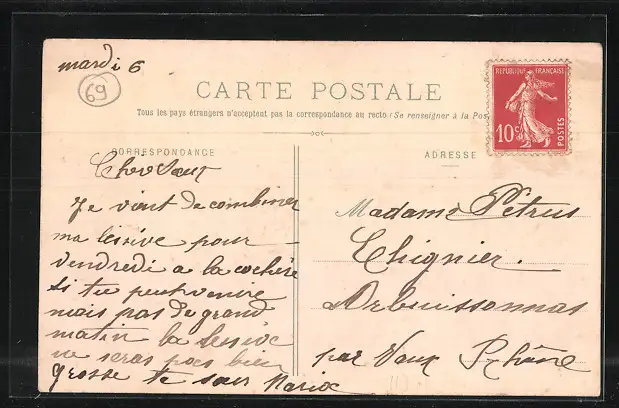 mardi 6
69
CARTE POSTALE
Tous les pays étrangers n'acceptent pas la correspondance au recto (Se renseigner à la Pos
REPUBLIQUE FRANÇAISE
10c
POSTES
CORRESPONDANCE
ADRESSE
Chère Sœur
Je vient de combiner
ma lessive pour
vendredi a la cochère
Si tu peut venire
mais pas de grand
matin la lessive
ne seras pas bien
grosse ta sœur Maria
Madame Pétrus
Chignier.
Arbuissonnas
par Vaux Rhône